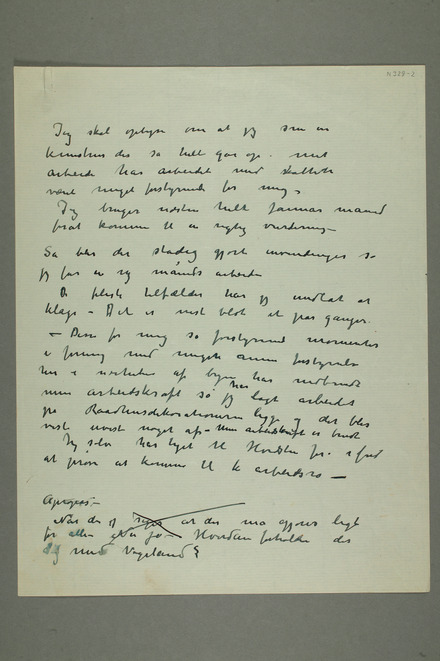 N 328-2
Jeg skal oplyse om at jeg som en
kunstner der så helt går op i mit
arbeide har arbeidet med skatten
været meget forstyrrende for mig –
Jeg bruger næsten helt januar maaned
forat komme til en rigtig vurdering –
Så blir der stadig gjort invendinger så
jeg får en ny måneds arbeide
De fleste tilfælder har jeg undlat at
klage – Det er vist blot et par ganger.
– Disse for mig så forstyrrende momenter
i forening med meget annen forstyrrelse
her i nærheten af byen har nedbrudt
min arbeidskraft så jeg har lagt arbeidet
på Raadhusdekorationerne ligge og det blev
vist neppe noget af – Min arbeidskraft er brudt
Jeg selv har tyet til Hvidsten for i fred
at prøve at komme til ro arbeidsro –
Apropos –
Når der jo siges at der må gjøres ligt
for alle. Nu ja – Hvordan forholder det
sig med Vigeland?